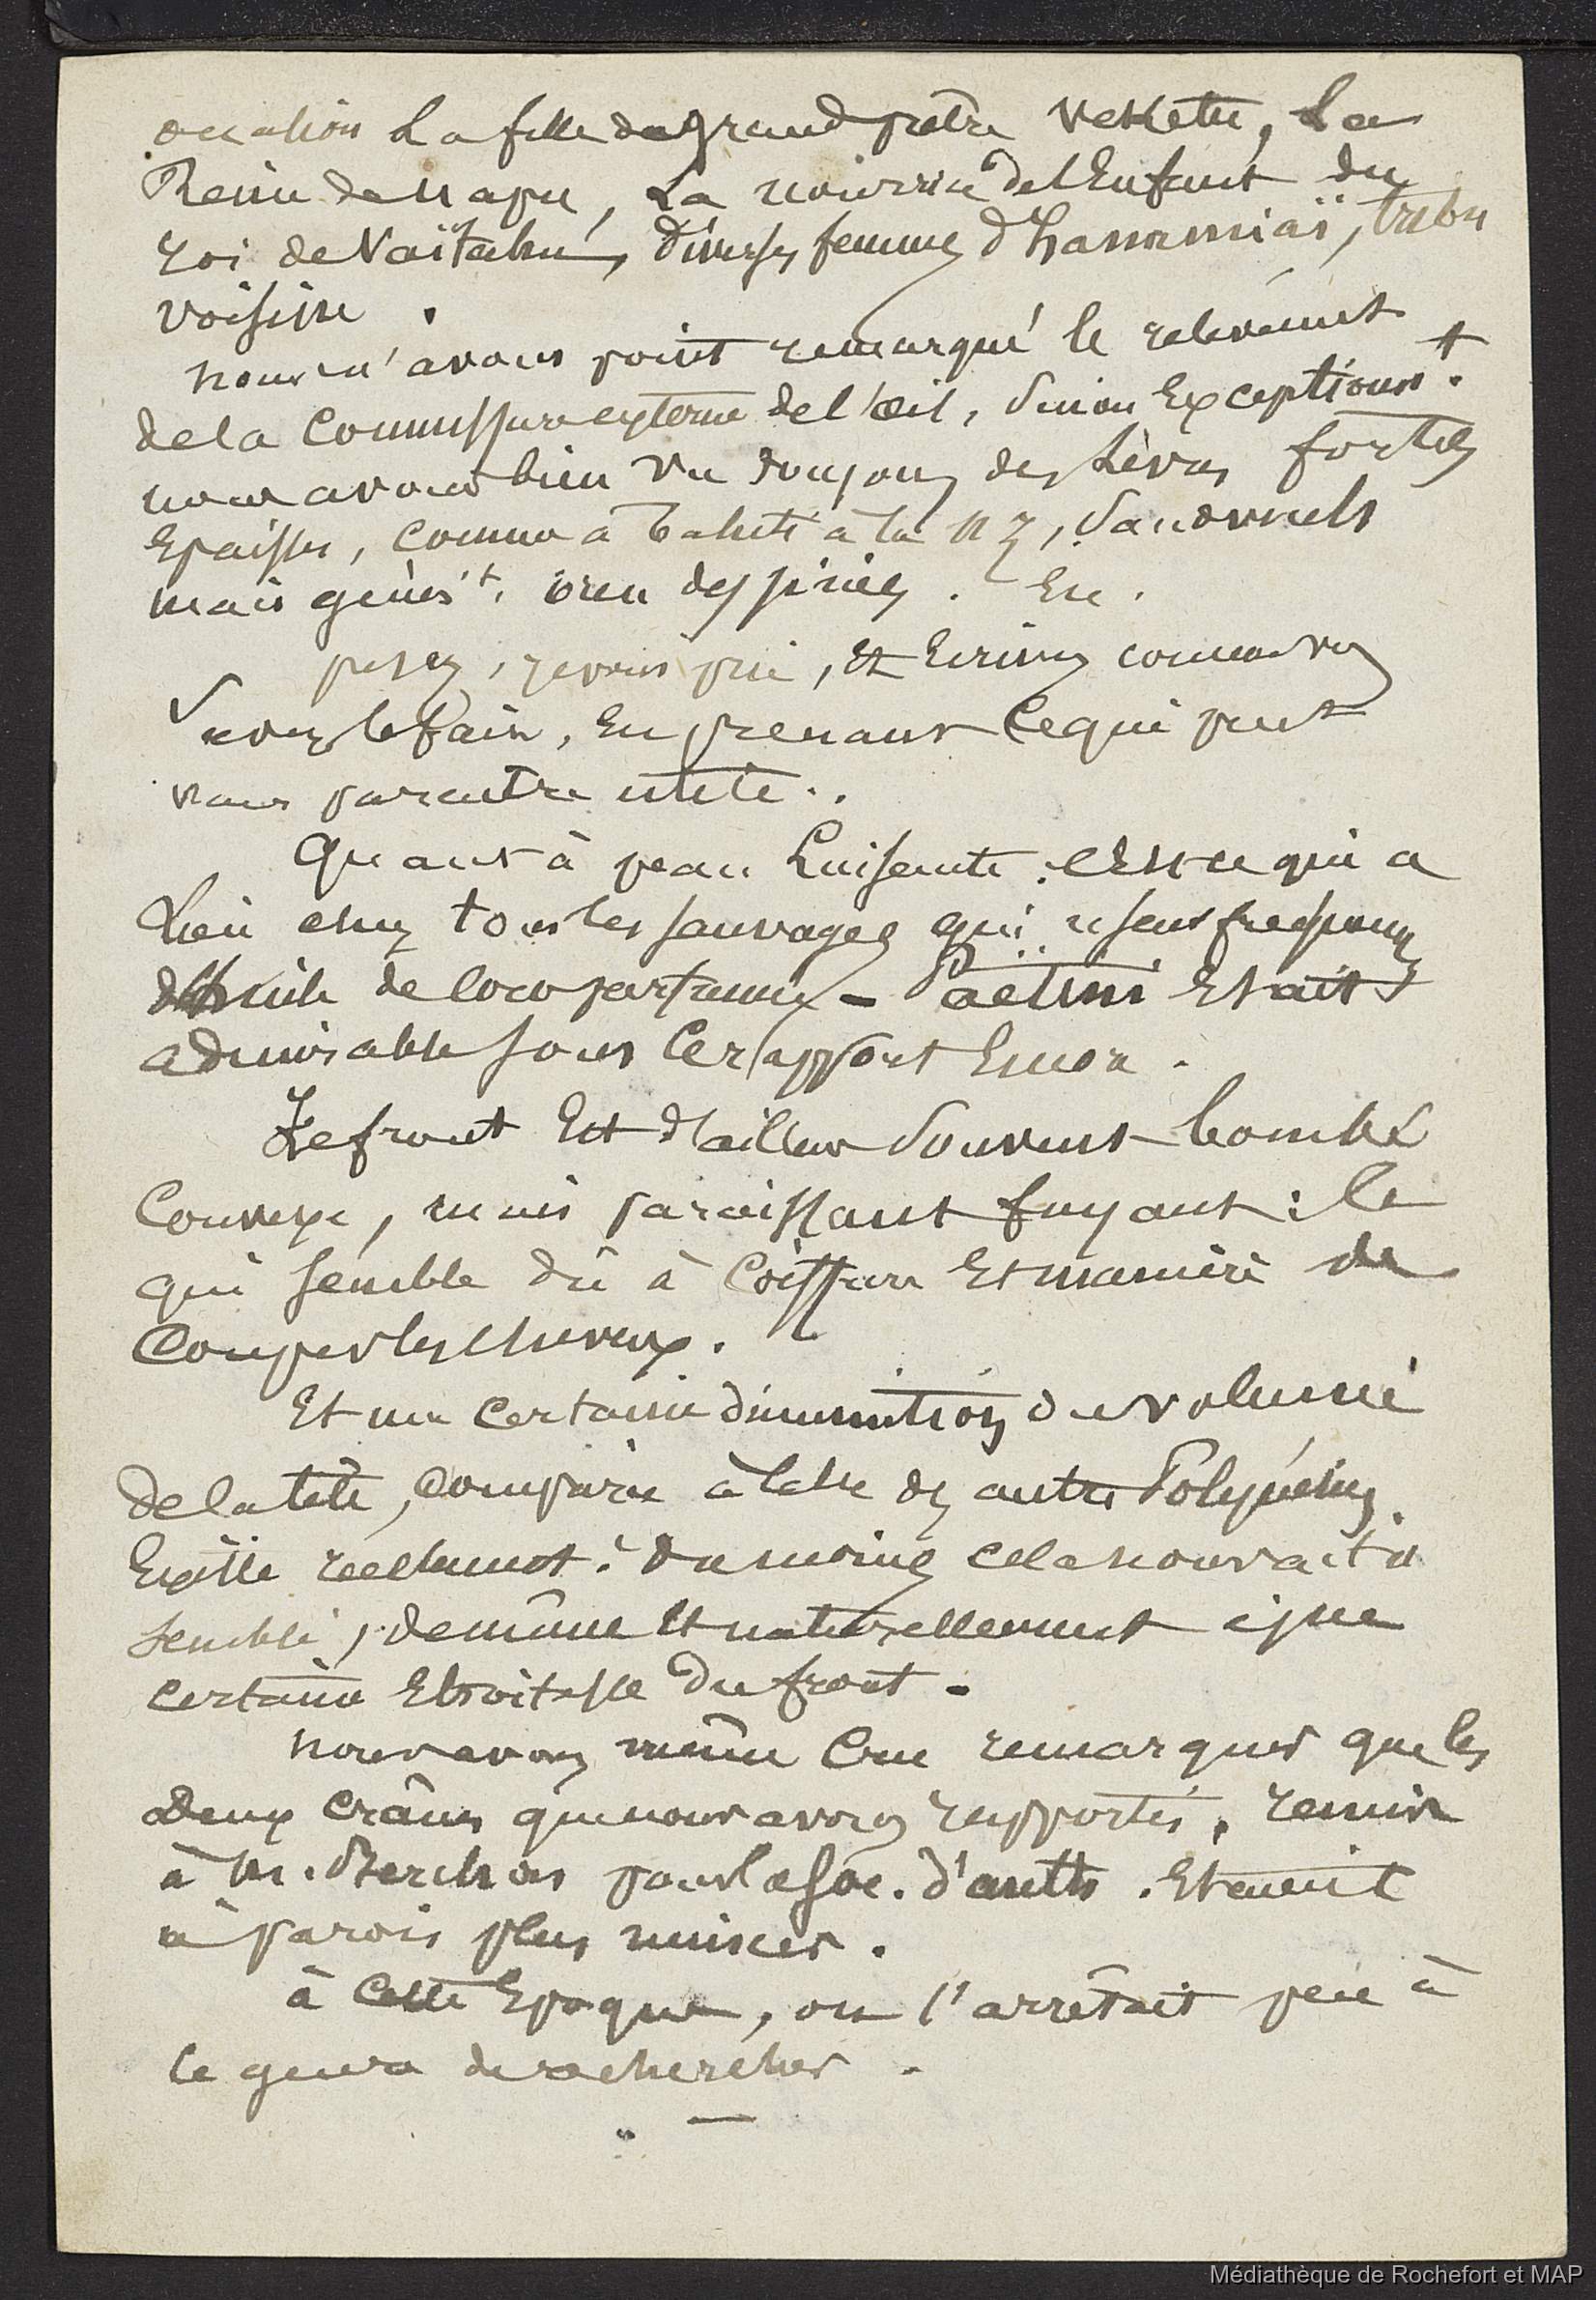 occasion la fille du grand prêtre Veketu, la
Reine de Hapu, la nourrice de l'Enfant du
roi de Vaïtahu, diverses femmes d'hanamiaï, tribu
voisine.
nous n'avons point remarqué le relèvement
de la commissure externe de l'œil, sinon Exceptionnt.
nous avons bien vu toujours des lèvres fortes
Epaisses, comme à Tahiti à la NZ, sensuels
mais génért. bien dessinées. En.
pesez, je vous prie, et Ecrivez comme vous
savez le faire, En prenant ce qui peut
vous paraitre utile..
Quant à peau luisante : c'est ce qui a
lieu chez tous les sauvages qui usent fréquemt
d'huile de coco parfumée – Paetini Etait
admirable sous ce rapport Encore.
Le front Est d'ailleurs souvent bombé
Convexe, mais paraissant fuyant : ce
qui semble dû à coiffure Et manière de
Couper les cheveux.
Et une certaine diminution de volume
de la tête, comparée à celle des autres Polynésiens
Existe réellement : du moins cela nous vait a
semblé, de même Et naturellement que
certaine Etroitesse du front –
nous avons même cru remarquer que les
Deux crânes que nous avons rapportés, remis
à Mr. Berchon pour la Soc. d'anth. Etaient
à parois plus minces.
à cette Epoque, on s'arrêtait peu à
ce genre de recherches.
Médiathèque de Rochefort et MAP